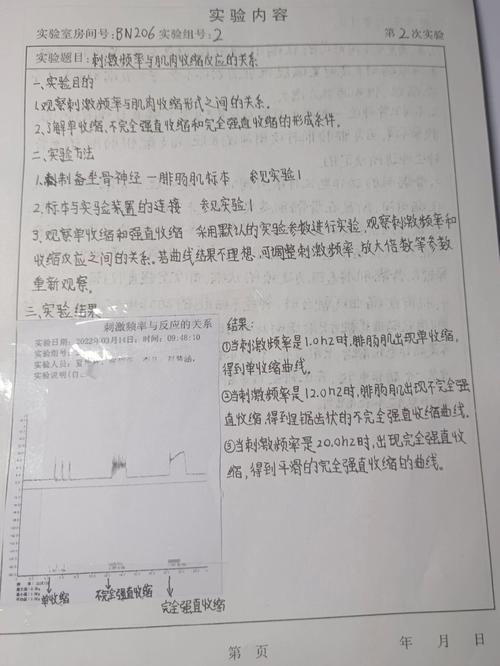 实验内容
实验室房间号:BN206 实验组号:2 第2次实验
实验题目:刺激频率与肌肉收缩反应的关系
一、实验目的
1.观察刺激频率与肌肉收缩形式之间的关系.
2.了解单收缩、不完全强直收缩和完全强直收缩的形成条件.
二、实验方法
1.制备坐骨神经—腓肠肌标本 参见实验1
2.标本与实验装置的连接 参见实验1
3.观察单收缩和强直收缩 采用默认的实验参数进行实验,观察刺激频率和
收缩反应之间的关系.若曲线结果不理想,可调整刺激频率、放大倍数等参数
重新观察.
三、实验结果
刺激频率与反应的关系
实验日期:2022年03月14日;时间:09:48:10
实验人员:
实验说明(自
单收缩 不完全强直收缩 完全强直收缩
结果:
①当刺激频率是1.0hz时,腓肠肌出现单收缩,
得到单收缩曲线.
②当刺激频率是12.0hz时,腓肠肌出现不完全强
直收缩,得到呈锯齿状的不完全强直收缩曲线.
③当刺激频率是20.0hz时,出现完全强直收
缩,得到平滑的完全强直收缩的曲线.
第 页 年 月 日